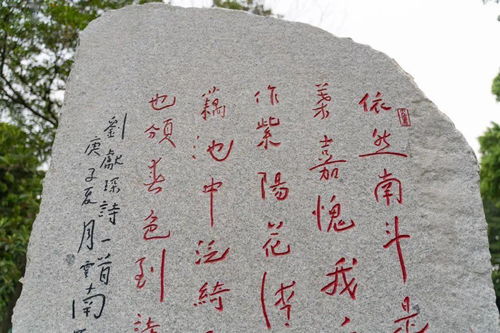 依然南斗
葉嘉愧我
作紫陽花
藕池中泛綺
也領春色到
劉獻琛詩一首
庚子夏月雲南